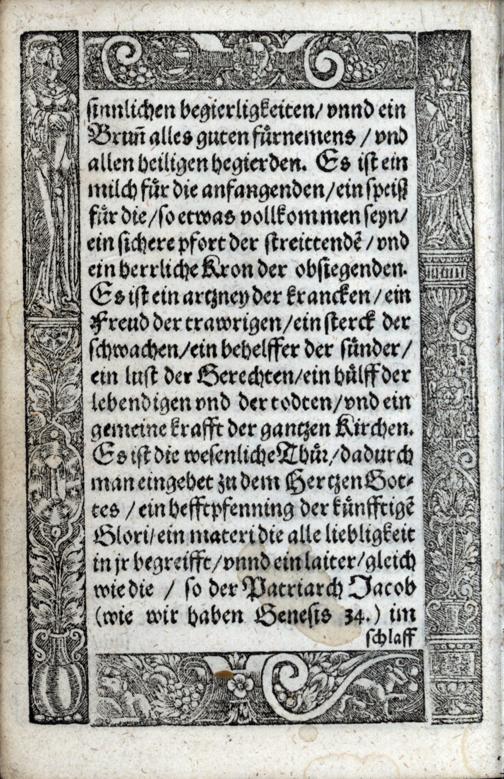 sinnlichen begierligkeiten/ vnnd ein
Brun̄ alles guten fürnemens / vnd
allen heiligen begierden. Es ist ein
milch für die anfangenden/ein speiß
für die/so etwas vollkommen seyn/
ein sichere pfort der streittendē / vnd
ein herrliche Kron der obsiegenden.
Es ist ein artzney der krancken/ ein
Freud der trawrigen/ein sterck der
schwachen/ein behelffer der sünder/
ein lust der Gerechten/ein hülff der
lebendigen vnd der todten/vnd ein
gemeine krafft der gantzen Kirchen.
Es ist die wesenliche Thür/dadurch
man eingehet zu dem Hertzen Got-
tes / ein hefftpfenning der künfftigē
Glori/ein materi die alle liebligkeit
in jr begreifft/vnnd ein laiter/gleich
wie die / so der Patriarch Jacob
(wie wir haben Genesis 34.) im
schlaff